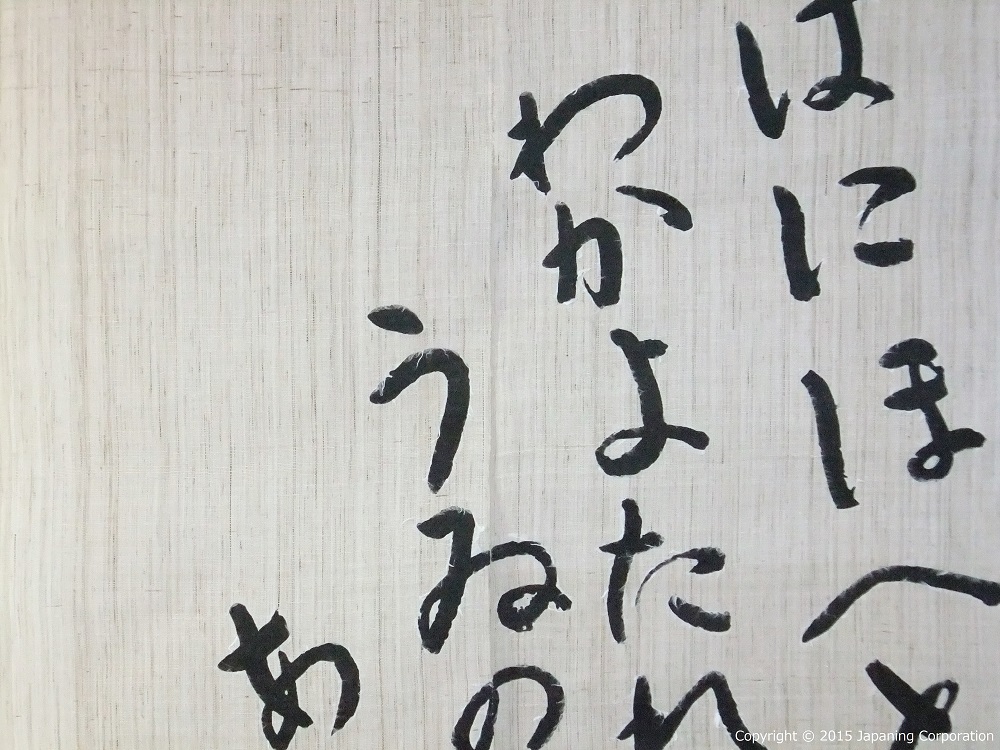 はにほへと
わかよたれ
うゐの
あ
Copyright © 2015 Japaning Corporation